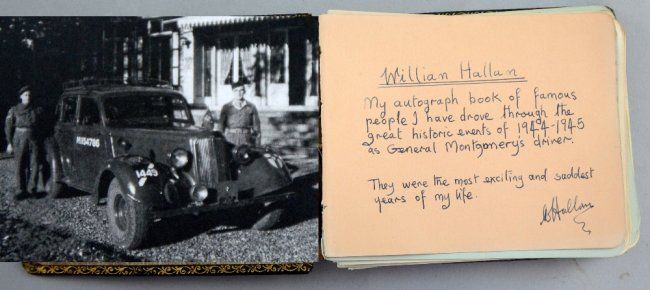 M1154786
1443
Willian Hallan
My autograph book of famous
people I have drove through the
great historic events of 1944-1945
as General Montgomery's driver.
They were the most exciting and saddest
years of my life.
WHallan